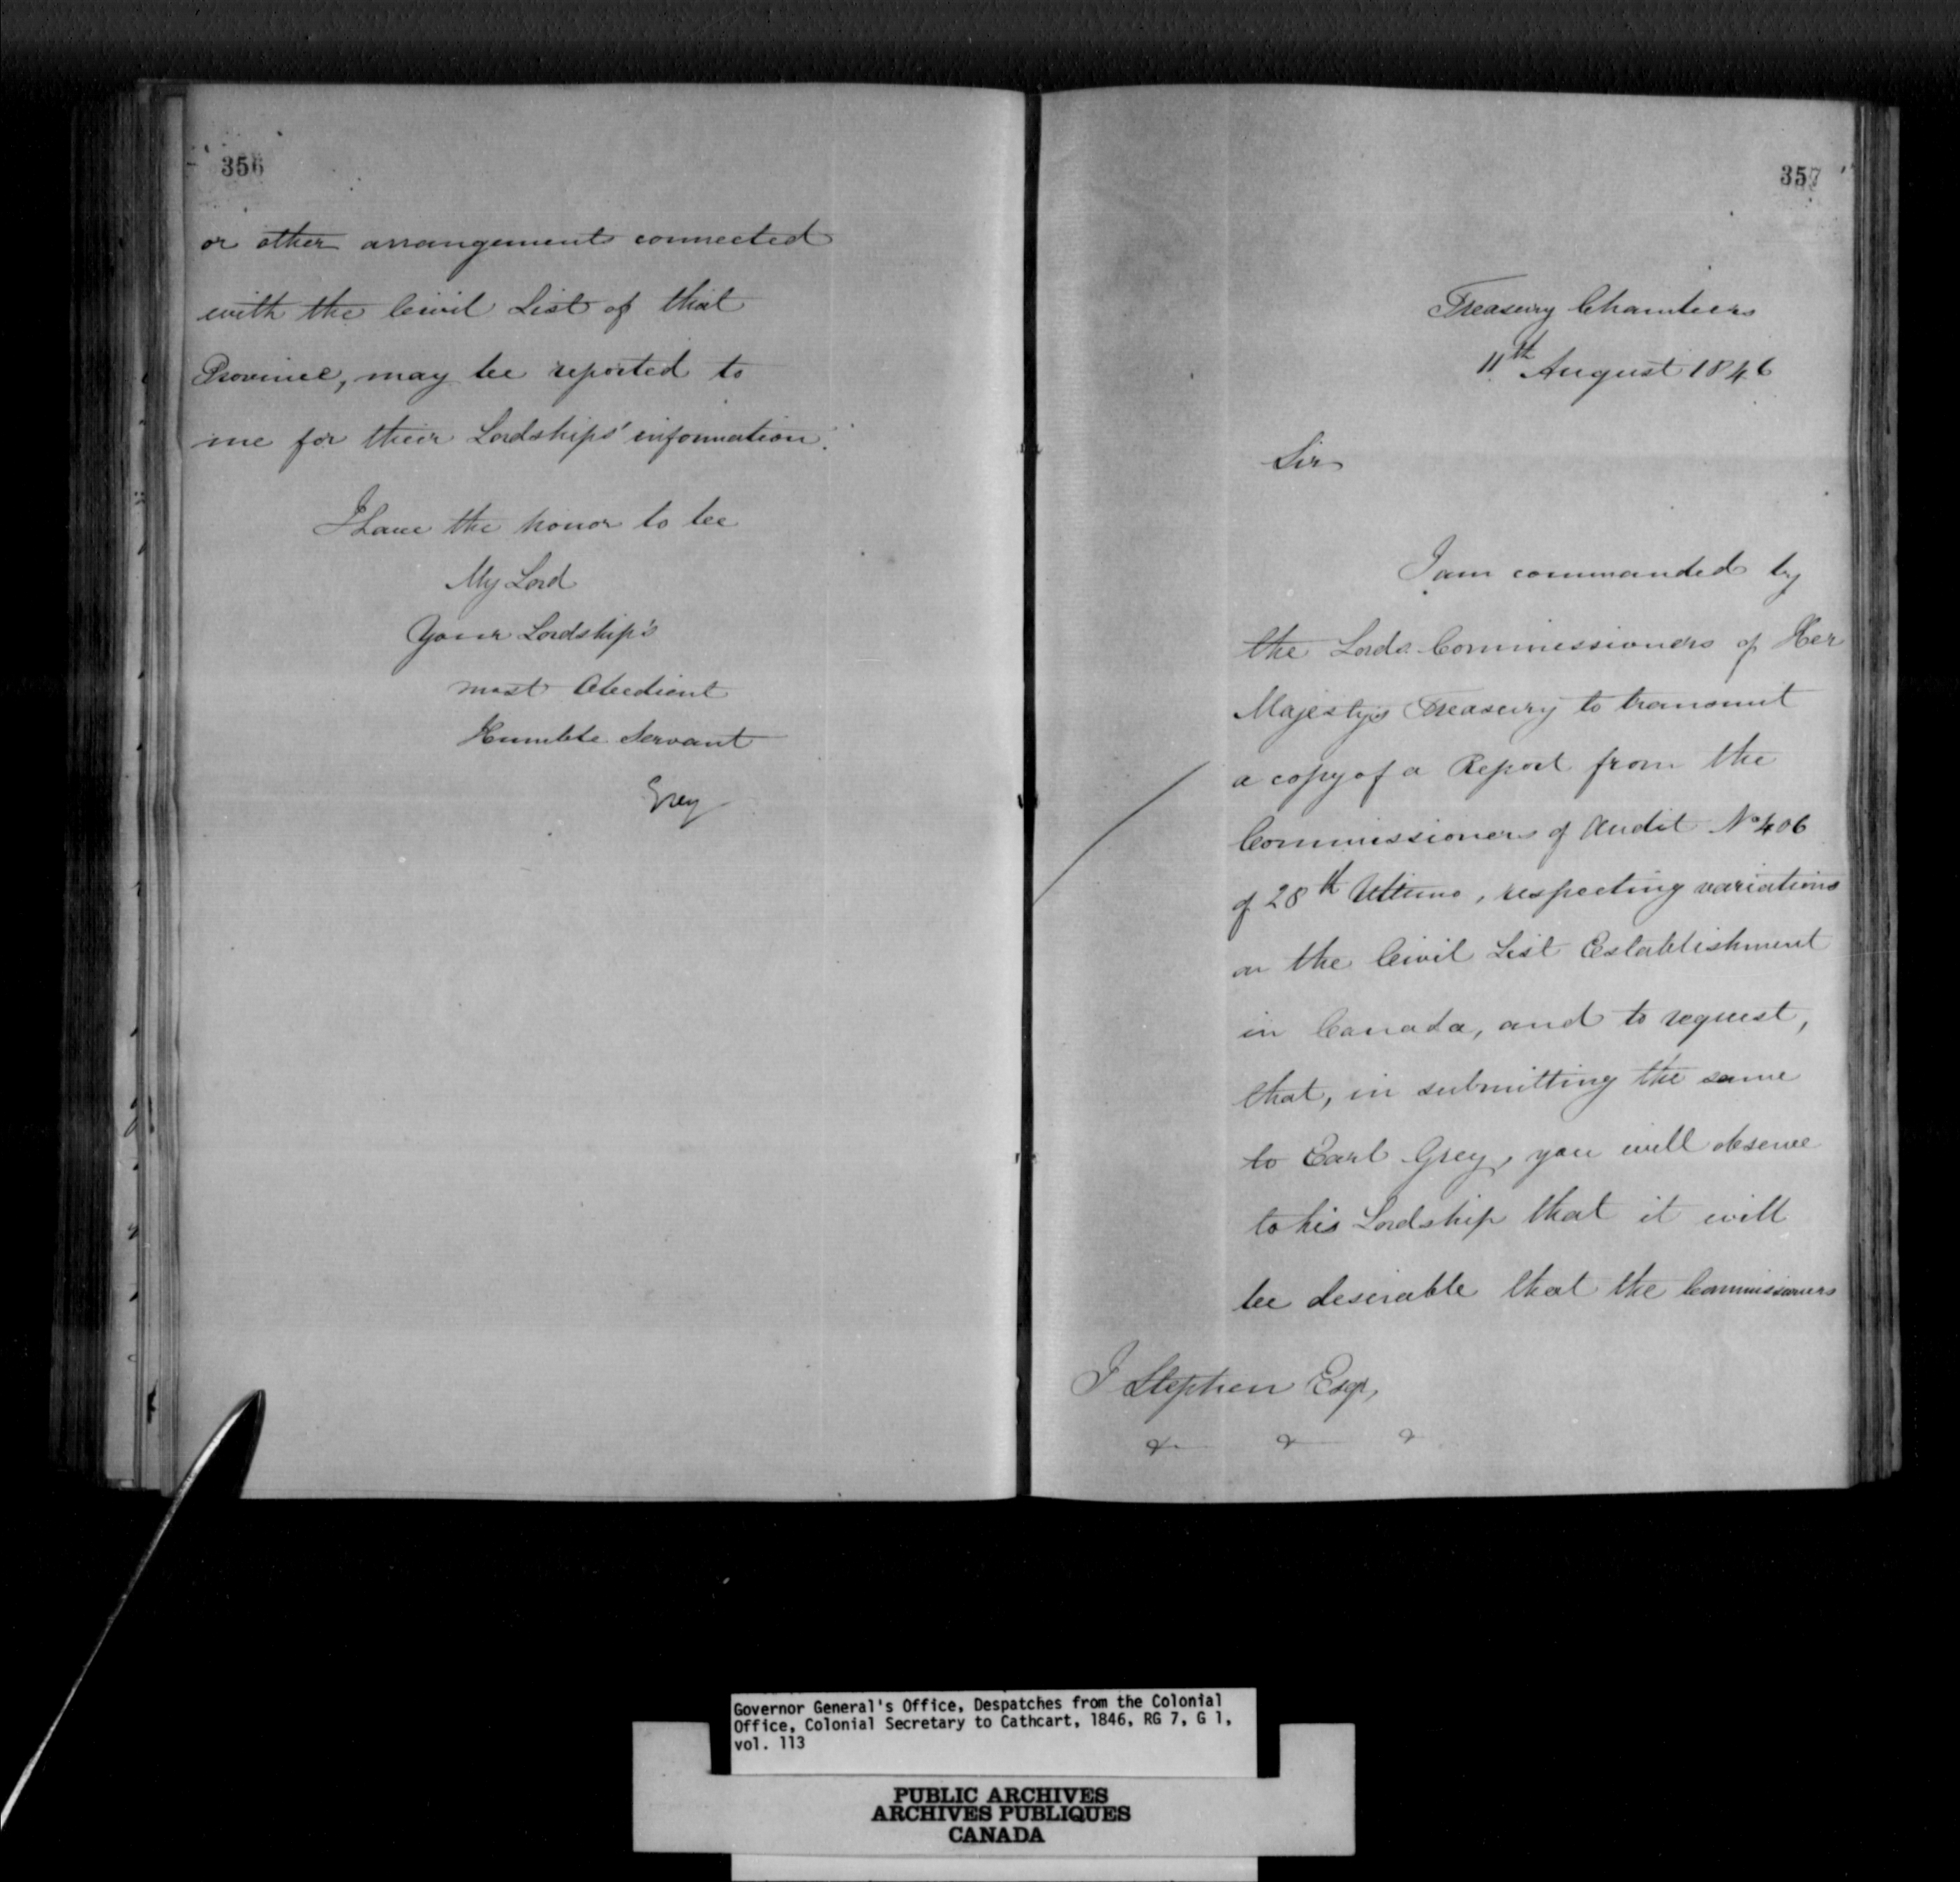 356
or other arrangements connected
with the Civil List of that
Province, may be reported to
me for their Lordships' information.
I have the honor to be
My Lord
Your Lordship's
most Obedient
Humble Servant
Grey
357
Treasury Chambers
11th August 1846
Sir
I am commanded by
the Lords Commissioners of Her
Majesty's Treasury to transmit
a copy of a Report from the
Commissioners of Audit No 406
of 28th Ultimo, respecting variations
on the Civil List Establishment
in Canada, and to request,
that, in submitting the same
to Earl Grey, you will observe
to his Lordship that it will
be desirable that the Commissioners
J Stephen Esqr,
& & &
Governor General's Office, Despatches from the Colonial
Office, Colonial Secretary to Cathcart, 1846, RG 7, G 1,
vol. 113
PUBLIC ARCHIVES
ARCHIVES PUBLIQUES
CANADA